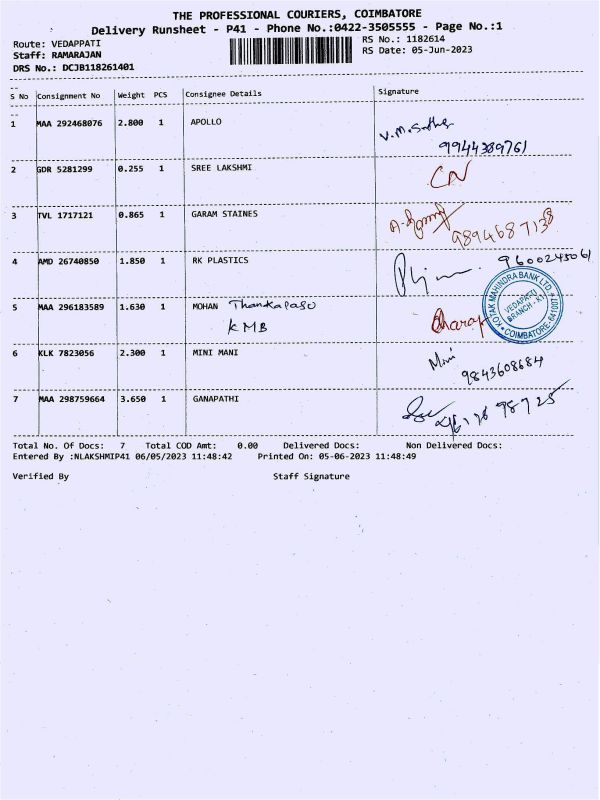 THE PROFESSIONAL COURIERS, COIMBATORE
Delivery Runsheet - P41 - Phone No.:0422-3505555 - Page No.:1
Route: VEDAPPATI
RS No.: 1182614
Staff: RAMARAJAN
RS Date: 05-Jun-2023
DRS No.: DCJB118261401
S No Consignment No Weight PCS Consignee Details Signature
1 MAA 292468076 2.800 1 APOLLO
9944389761
2 GDR 5281299 0.255 1 SREE LAKSHMI
CN
3 TVL 1717121 0.865 1 GARAM STAINES
9894687138
4 AMD 26740850 1.850 1 RK PLASTICS
9600245061
5 MAA 296183589 1.630 1 MOHAN
KMB
KOTAK MAHINDRA BANK LTD.
VEDAPATTI
BRANCH
COIMBATORE-641007
6 KLK 7823056 2.300 1 MINI MANI
Mini
9843608684
7 MAA 298759664 3.650 1 GANAPATHI
Total No. Of Docs: 7 Total COD Amt: 0.00 Delivered Docs: Non Delivered Docs:
Entered By :NLAKSHMIP41 06/05/2023 11:48:42 Printed On: 05-06-2023 11:48:49
Verified By Staff Signature